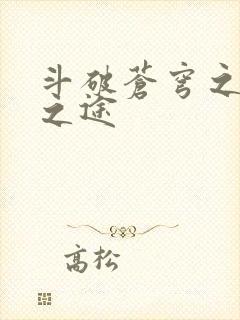 斗破蒼穹之
之途
高松